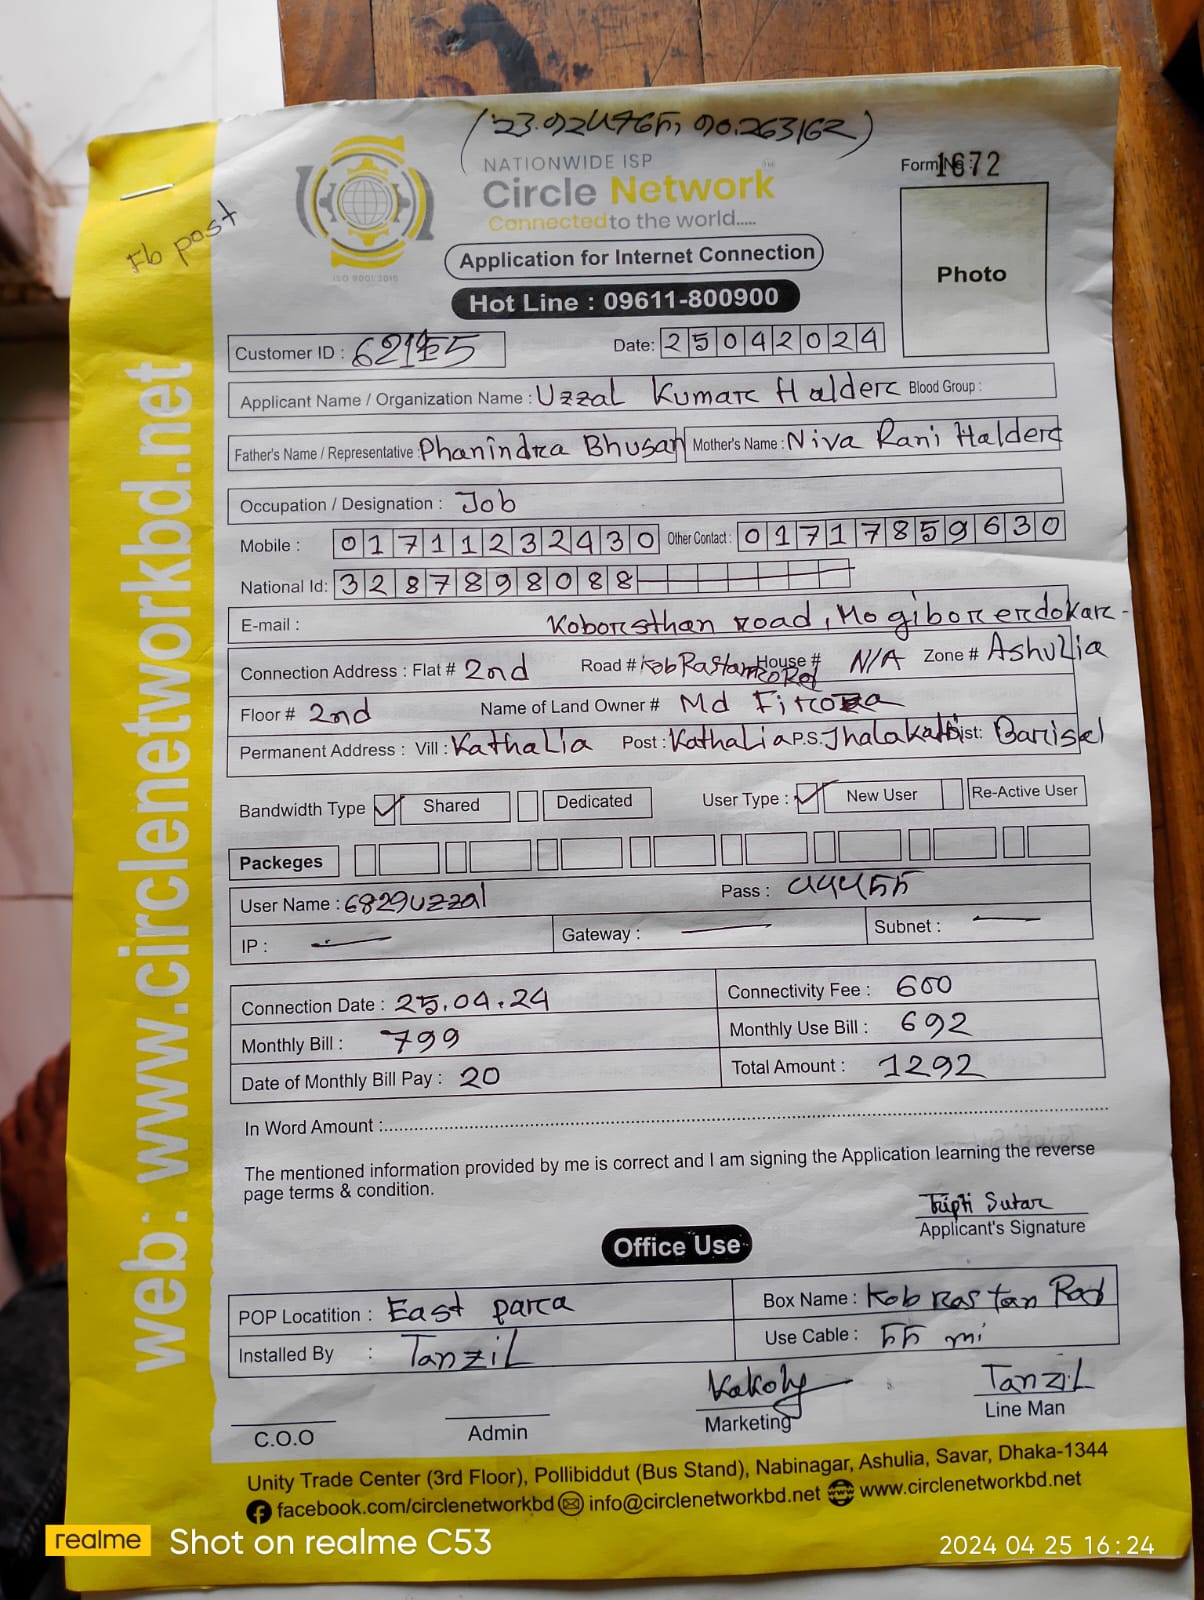 (23.924765, 90.263162)
NATIONWIDE ISP
Circle Network
Connected to the world.....
ISO 9001:2015
Form No : 1672
Fb post
Application for Internet Connection
Photo
Hot Line : 09611-800900
Customer ID :
Date: 25042024
Applicant Name / Organization Name : Uzzal Kumar Halder Blood Group :
Father's Name / Representative : Phanindra Bhusan Mother's Name : Niva Rani Halder
Occupation / Designation : Job
Mobile : 01711232430 Other Contact : 01717859630
National Id: 3287898088
E-mail : Koborsthan road,
Connection Address : Flat # 2nd Road # House # N/A Zone # Ashulia
Floor # 2nd Name of Land Owner # Md Firoza
Permanent Address : Vill : Kathalia Post : Kathalia P.S. Jhalakathi Dist: Barisal
Bandwidth Type Shared Dedicated User Type : New User Re-Active User
Packeges
User Name : 6829uzzal Pass :
IP : Gateway : Subnet :
Connection Date : 25.04.24 Connectivity Fee : 600
Monthly Bill : 799 Monthly Use Bill : 692
Date of Monthly Bill Pay : 20 Total Amount : 1292
In Word Amount :
The mentioned information provided by me is correct and I am signing the Application learning the reverse
page terms & condition.
Tripti Sutar
Applicant's Signature
Office Use
POP Locatition : East para Box Name : Kob Rastan Rod
Installed By : Tanzil Use Cable : 55 mi
Kakoly Tanzil
C.O.O Admin Marketing Line Man
Unity Trade Center (3rd Floor), Pollibiddut (Bus Stand), Nabinagar, Ashulia, Savar, Dhaka-1344
facebook.com/circlenetworkbd info@circlenetworkbd.net www.circlenetworkbd.net
web: www.circlenetworkbd.net
realme Shot on realme C53
2024 04 25 16:24